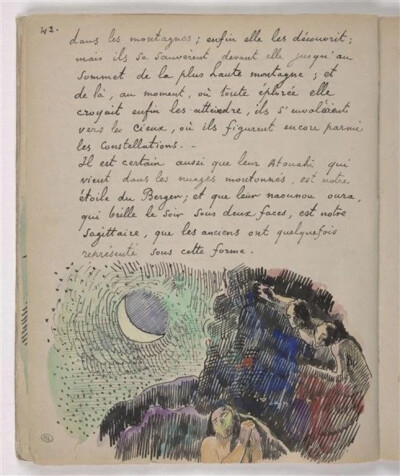 42.
dans les montagnes ; enfin elle les découvrit ;
mais ils se sauvèrent devant elle jusqu'au
sommet de la plus haute montagne ; et
de là, au moment, où toute éplorée elle
croyait enfin les atteindre, ils s'envolèrent
vers les cieux, où ils figurent encore parmi
les Constellations. _
Il est certain aussi que leur Atouahi qui
vient dans les nuages moutonnés, est notre
étoile du Berger ; et que leur naounou oura,
qui brille le soir sous deux faces, est notre
Sagittaire, que les anciens ont quelquefois
représenté sous cette forme.